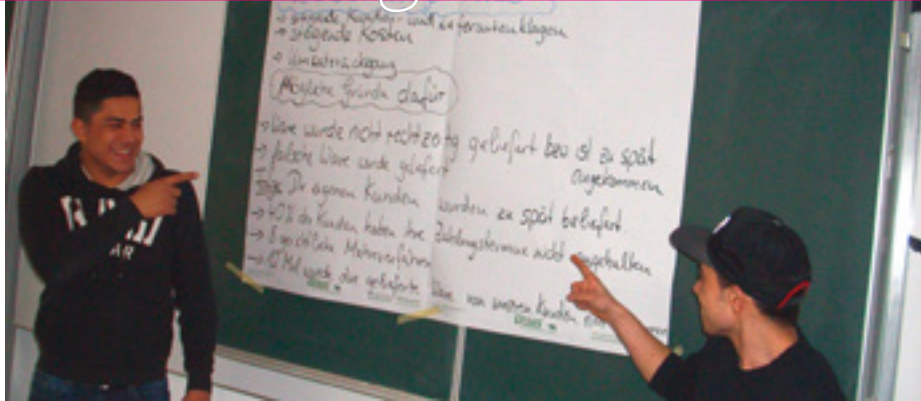 → steigende Kunden- und Lieferantenklagen
→ steigende Kosten
→ Umsatzrückgang
Mögliche Gründe dafür
→ Ware wurde nicht rechtzeitig geliefert bzw ist zu spät
angekommen
→ falsche Ware wurde geliefert
Die eigenen Kunden wurden zu spät beliefert
→ 40% der Kunden haben ihre Zahlungstermine nicht eingehalten
→ 8 gerichtliche Mahnverfahren
→ 12 Mal wurde die gelieferte Ware von unseren Kunden
AR